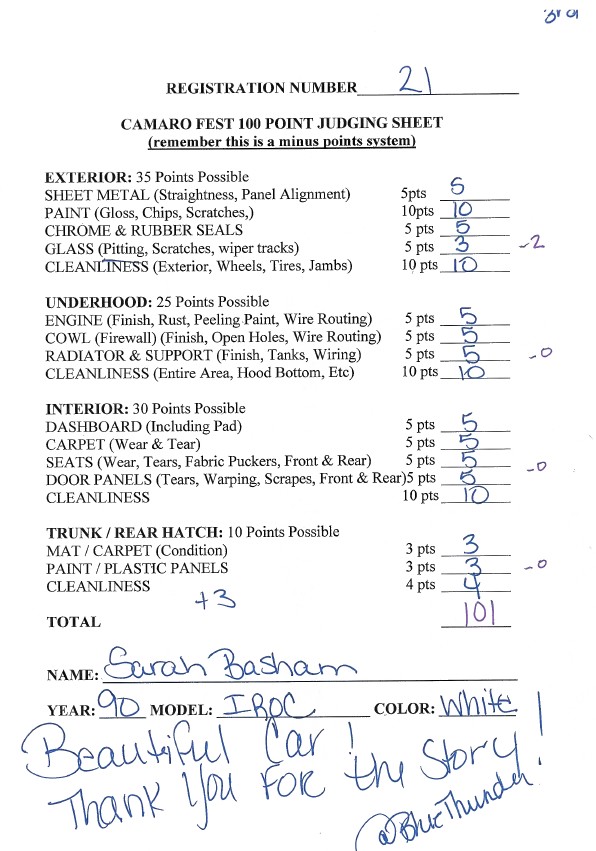 REGISTRATION NUMBER 21
CAMARO FEST 100 POINT JUDGING SHEET
(remember this is a minus points system)
EXTERIOR: 35 Points Possible
SHEET METAL (Straightness, Panel Alignment) 5pts 5
PAINT (Gloss, Chips, Scratches,) 10pts 10
CHROME & RUBBER SEALS 5 pts 5
GLASS (Pitting, Scratches, wiper tracks) 5 pts 3 -2
CLEANLINESS (Exterior, Wheels, Tires, Jambs) 10 pts 10
UNDERHOOD: 25 Points Possible
ENGINE (Finish, Rust, Peeling Paint, Wire Routing) 5 pts 5
COWL (Firewall) (Finish, Open Holes, Wire Routing) 5 pts 5
RADIATOR & SUPPORT (Finish, Tanks, Wiring) 5 pts 5 -0
CLEANLINESS (Entire Area, Hood Bottom, Etc) 10 pts 10
INTERIOR: 30 Points Possible
DASHBOARD (Including Pad) 5 pts 5
CARPET (Wear & Tear) 5 pts 5
SEATS (Wear, Tears, Fabric Puckers, Front & Rear) 5 pts 5 -0
DOOR PANELS (Tears, Warping, Scrapes, Front & Rear)5 pts 5
CLEANLINESS 10 pts 10
TRUNK / REAR HATCH: 10 Points Possible
MAT / CARPET (Condition) 3 pts 3
PAINT / PLASTIC PANELS 3 pts 3 -0
CLEANLINESS 4 pts 4
+3
TOTAL 101
NAME: Sarah Basham
YEAR: 90 MODEL: IROC COLOR: White
Beautiful Car!
Thank You FOR the Story!
@BlueThunder.